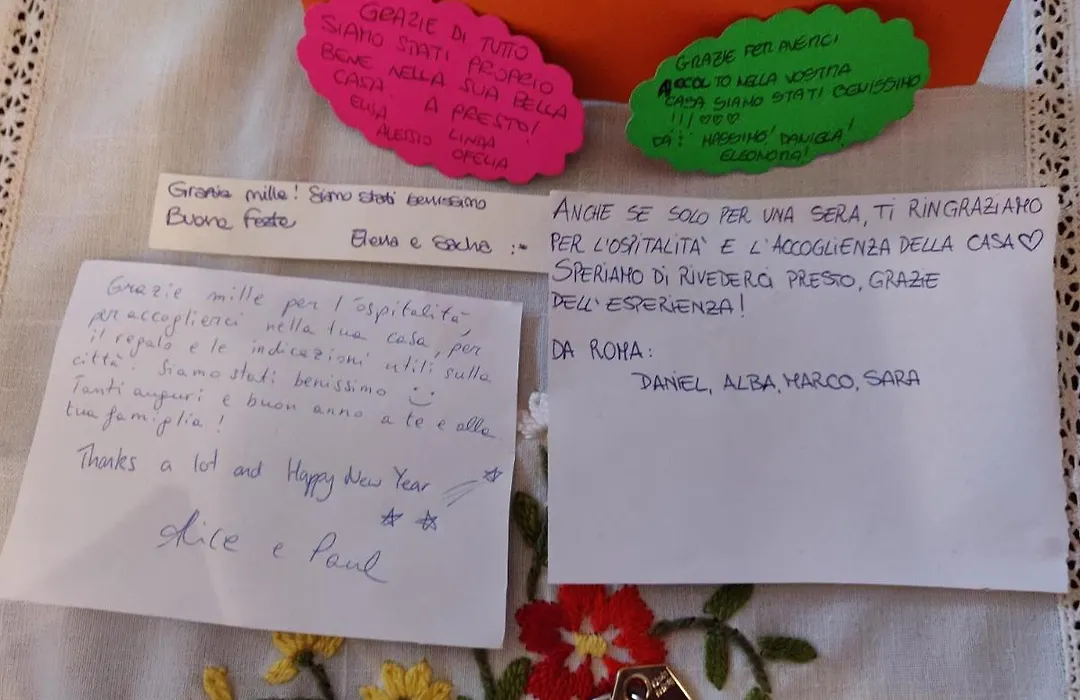 GRAZIE DI TUTTO
SIAMO STATI PROPRIO
BENE NELLA SUA BELLA
CASA A PRESTO!
ELISA
ALESSIO LINDA
OFELIA
GRAZIE PER AVERCI
ACCOLTO NELLA VOSTRA
CASA SIAMO STATI BENISSIMO
!!! ♡♡♡
DA: MASSIMO! DANIELA!
ELEONORA!
Grazie mille! Siamo stati benissimo
Buone feste
Elena e Sacha :-
ANCHE SE SOLO PER UNA SERA, TI RINGRAZIAMO
PER L'OSPITALITA' E L'ACCOGLIENZA DELLA CASA♡
SPERIAMO DI RIVEDERCI PRESTO, GRAZIE
DELL'ESPERIENZA!
DA ROMA:
DANIEL, ALBA, MARCO, SARA
Grazie mille per l'ospitalità,
per accoglierci nella tua casa, per
il regalo e le indicazioni utili sulla
città. Siamo stati benissimo
Tanti auguri e buon anno a te e alla
tua famiglia!
Thanks a lot and Happy New Year
Alice e Paul